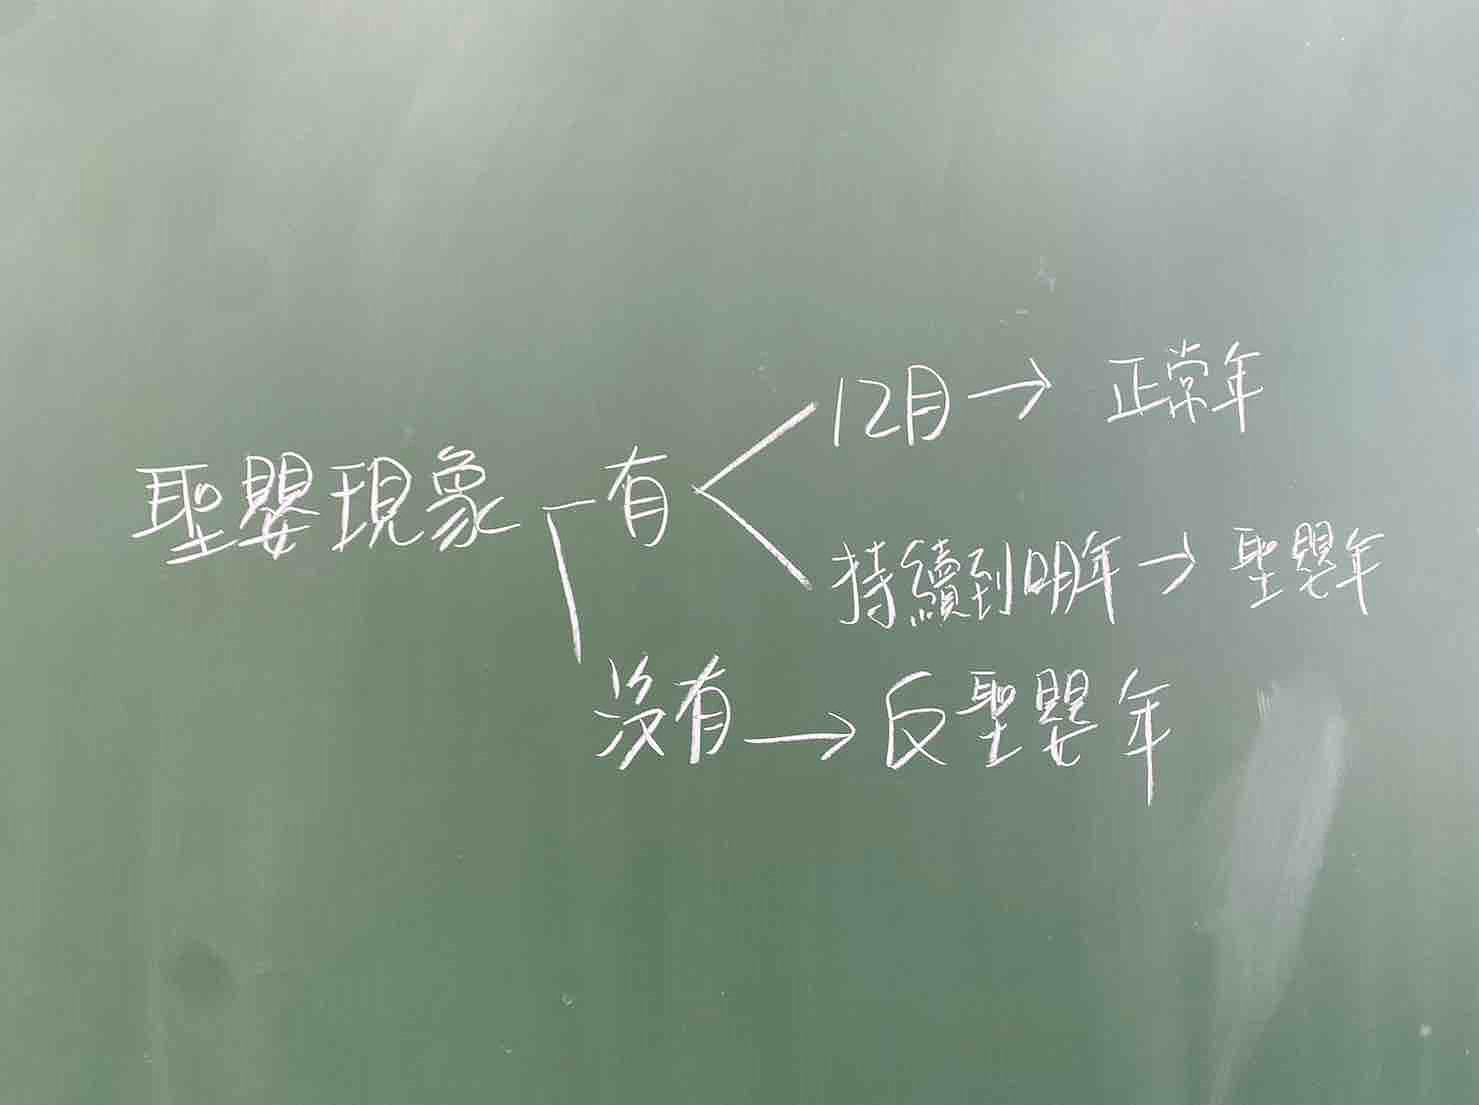 12月→ 正常年
聖嬰現象 有
持續到明年→ 聖嬰年
沒有→反聖嬰年